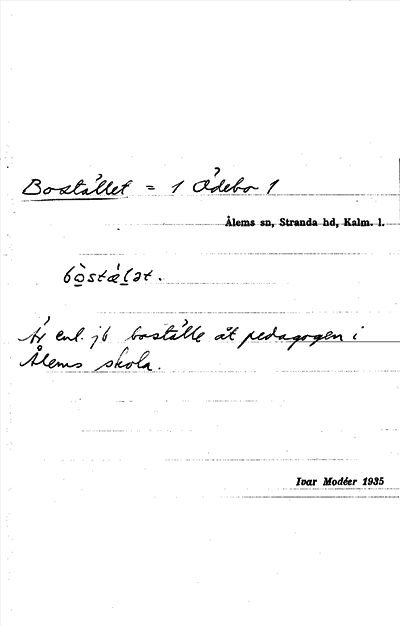 Bostället = 1 Ödebo 1
Ålems sn, Stranda hd, Kalm. l.
bòstálət.
Är enl. jb boställe åt pedagogen i
Ålems skola.
Ivar Modéer 1935